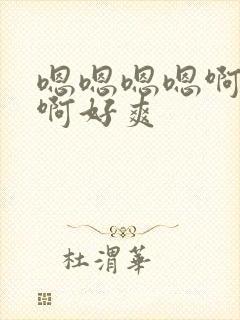 嗯嗯嗯嗯啊
啊好爽
杜渭華